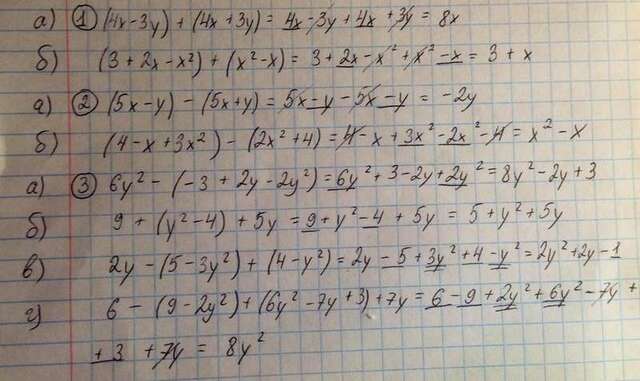 а) ① (4x-3y) + (4x+3y) = 4x-3y+4x+3y = 8x
б) (3+2x-x²) + (x²-x) = 3+2x-x²+x²-x = 3+x
а) ② (5x-y) - (5x+y) = 5x-y-5x-y = -2y
б) (4-x+3x²) - (2x²+4) = 4-x+3x²-2x²-4 = x²-x
а) ③ 6y² - (-3+2y-2y²) = 6y²+3-2y+2y² = 8y²-2y+3
б) 9 + (y²-4) + 5y = 9+y²-4+5y = 5+y²+5y
в) 2y - (5-3y²) + (4-y²) = 2y-5+3y²+4-y² = 2y²+2y-1
г) 6 - (9-2y²) + (6y²-7y+3) + 7y = 6-9+2y²+6y²-7y+
+3 +7y = 8y²